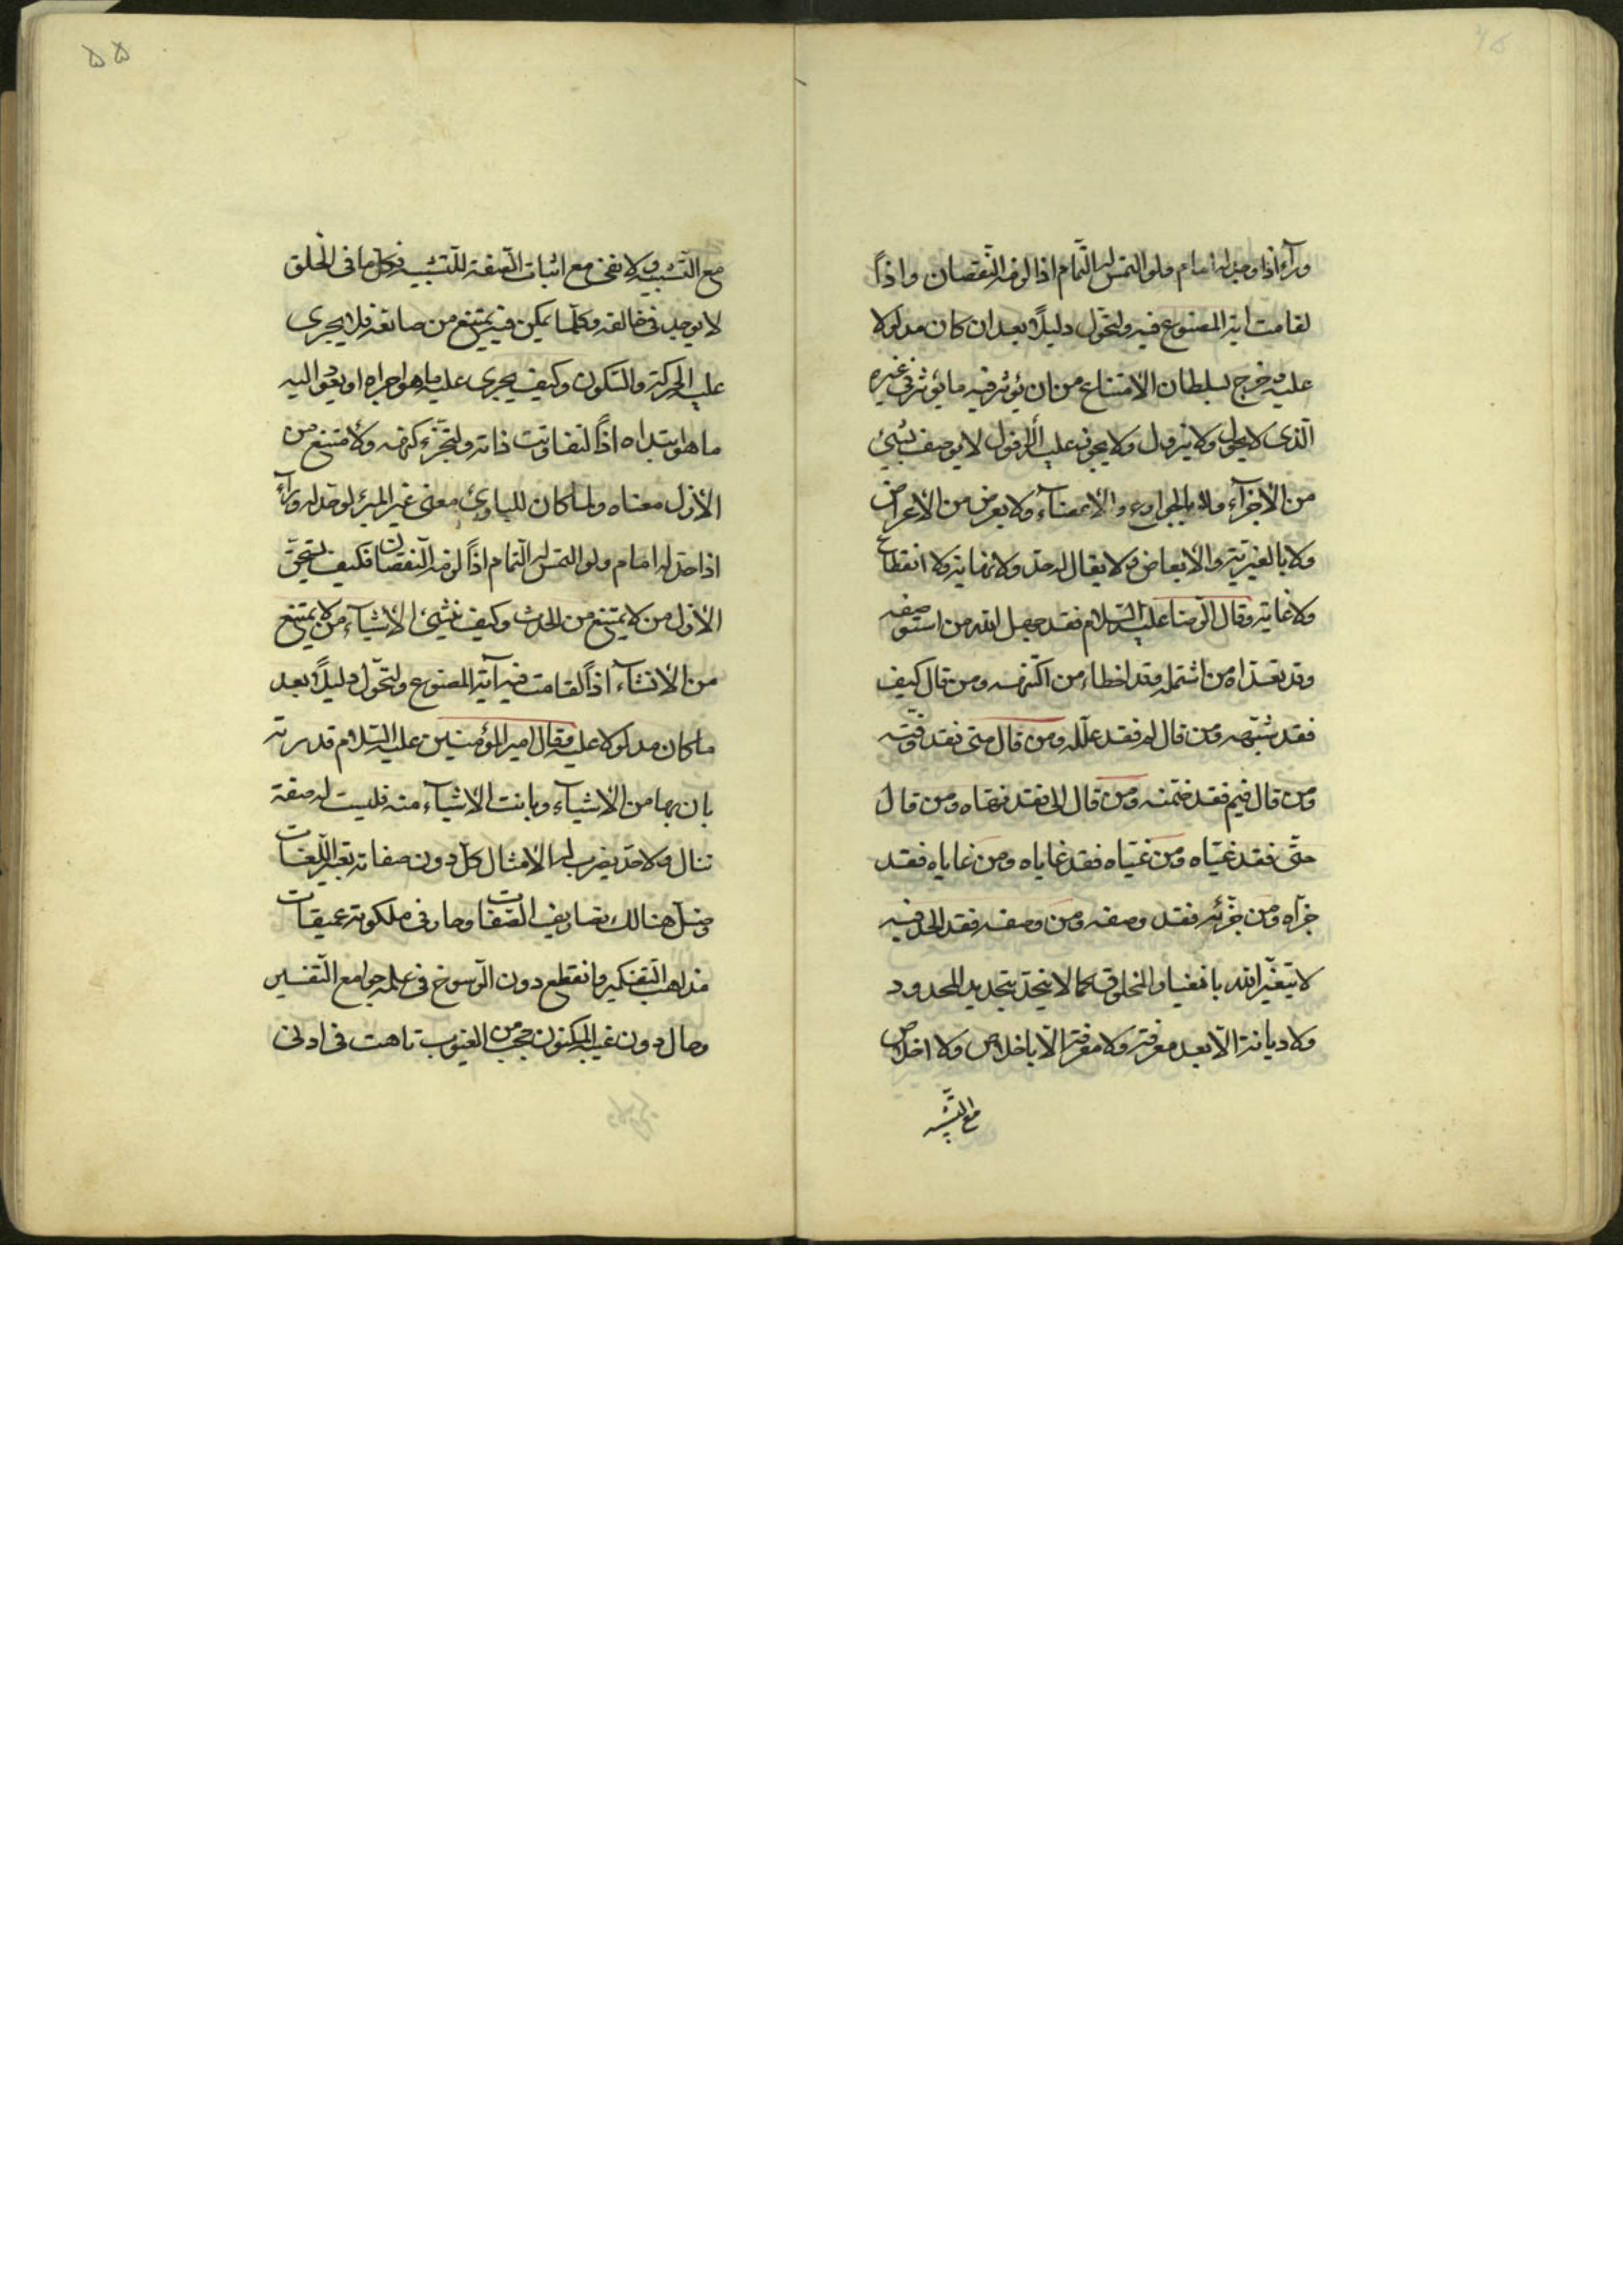 وراء اذا وجد له امام ولو التمس له التّمام اذا لزمه النّقصان واذاً
لقامت اية المصنوع فيه ولتحوّل دليلاً بعد ان كان مدلولا
عليه وخرج بسلطان الامتناع من ان يؤثر فيه ما يؤثر في غيره
الّذى لا يحول ولا يزول ولا يجوز عليه الأفول لا يوصف بشيئ
من الأجزآء ولا بالجوارح والأعضآء ولا بعرض من الأعراض
ولا بالغيريّة والأبعاض ولا يقال له حدّ ولا نهاية ولا انقطاع
ولا غاية وقال الرّضا عليه السّلام فقد جهل الله من استوصفه
وقد تعدّاه من اشتمله وقد اخطاء من اكتنهه ومن قال كيف
فقد شبّهه ومن قال لم فقد علّله ومن قال متى فقد وقّته
ومن قال فيم فقد ضمّنه ومن قال الى فقد نهّاه ومن قال
حتّى فقد غيّاه ومن غيّاه فقد غاياه ومن غاياه فقد
جزّاه ومن جزّئه فقد وصفه ومن وصفه فقد الحد فيه
لا يتغيّر الله بانغيار المخلوق كما لا ينحدّ بتحديد المحدود
ولا ديانة الّا بعد معرفة ولا معرفة الّا باخلاص ولا اخلاص
مع التّشبيه
۵۵
مع التّشبيه ولا نفى مع اثبات الصّفة للتّشبيه فكلّ ما فى الخلق
لا يوجد فى خالقه وكلّما يمكن فيه يمتنع من صانعه فلا يجرى
عليه الحركة والسّكون وكيف يجرى عليه ما هو اجراه او يعود اليه
ما هو ابتداه اذاً لتفاوتت ذاته ولتجزّء كنهه ولامتنع من
الأزل معناه ولما كان للبارئ معنى غير المبرء لو حدّ له ورآء
اذا حدّ له امام ولو التمس له التّمام اذاً لزمه النّقصان فكيف يستحقّ
الأزل من لا يمتنع من الحدث وكيف ينشئ الأشيآء من لا يمتنع
من الانشآء اذاً لقامت فيه آية المصنوع ولتحوّل دليلاً بعد
ما كان مدلولا عليه وقال امير المؤمنين عليه السّلام قدرته
بان بها من الأشيآء وبانت الأشيآء منه فليست له صفة
تنال ولا حدّ يضرب له الأمثال كلّ دون صفاته تعبير اللّغات
وضلّ هنالك تصاريف الصّفات وحار فى ملكوته عميقات
مذاهب التّفكير وانقطع دون الرّسوخ فى علمه جوامع التّفسير
وحال دون غيبه المكنون حجب من الغيوب تاهت فى ادنى